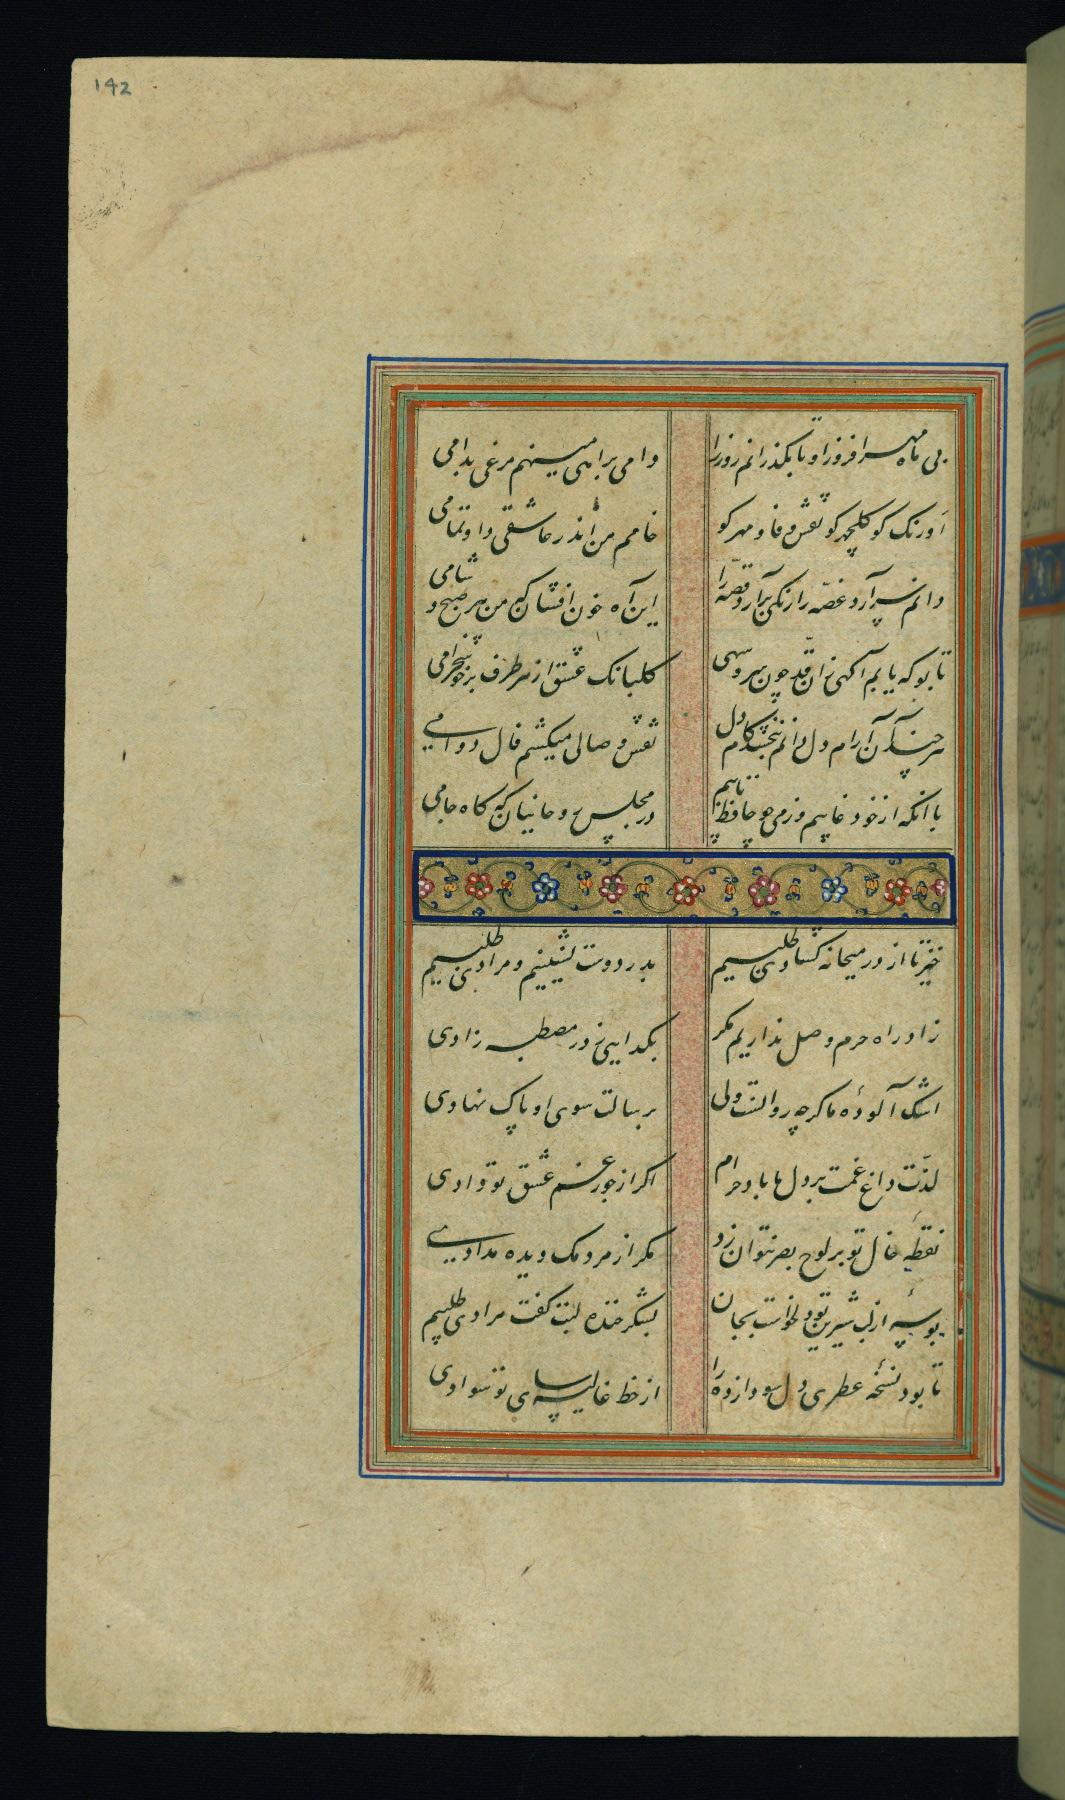 142
بی ماه مهر افروز او تا بکذرانم روز را
دامی براهی مینهم مرغی بدامی
اورنک کو کلچهر کو نقش وفا و مهر کو
خامم من اندر عاشقی داو تمامی
دانم سر آرد غصّه را رنکین برآرد قصّه را
این آه خون افشان که من هر صبح و شامی
تا بو که یابم آکهی زان قد چون سرو سهی
کلبانک عشق از هر طرف بر خوشخرامی
هر چند کآن آرام دل دانم نبخشد کام دل
نقش وصالی میکشم فال دوامی
با انکه از خود غایبم وز می چو حافظ تایبم
در مجلس روحانیان که کاه جامی
خیز تا از در میخانه کشادی طلبیم
بدر دوست نشینیم و مرادی طلبیم
زاد راه حرم وصل نداریم مکر
بکدایی ز در مصطبه زادی
اشک آلوده ما کرچه روانست ولی
برسالت سوی او پاک نهادی
لذّت داغ غمت بر دل ما باد حرام
اکر از جور غم عشق تو دادی
نقطه خال تو بر لوح بصر نتوان زد
مکر از مردمک دیده مدادی
بوسه از لب شیرین تو دل خواست بجان
بشکر خنده لبت کفت مرادی طلبیم
تا بود نسخه عطری دل سودازده را
از خط غالیه سای تو سوادی